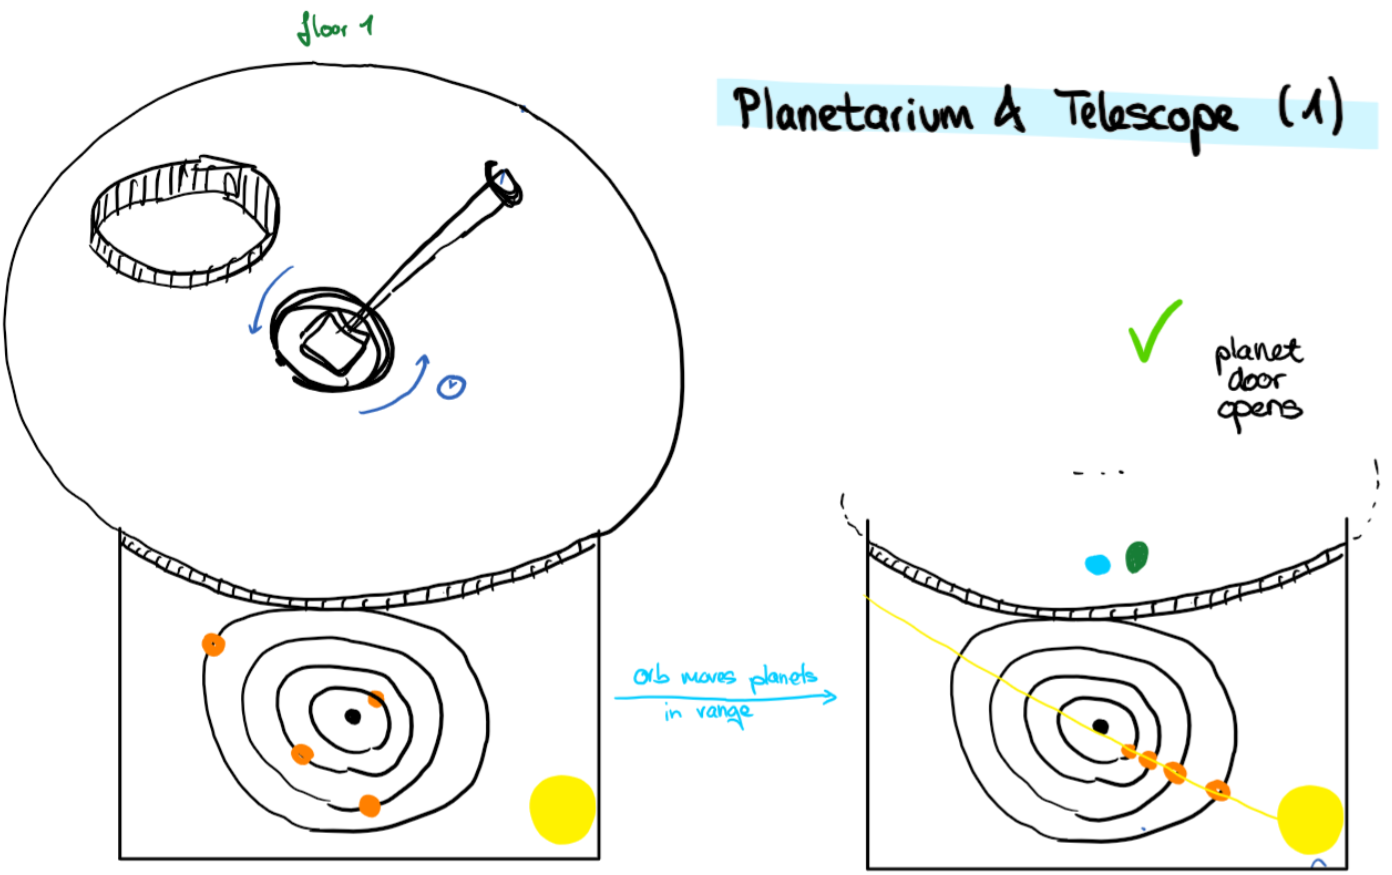 floor 1
Planetarium & Telescope (1)
planet
door
opens
orb moves planets
in range